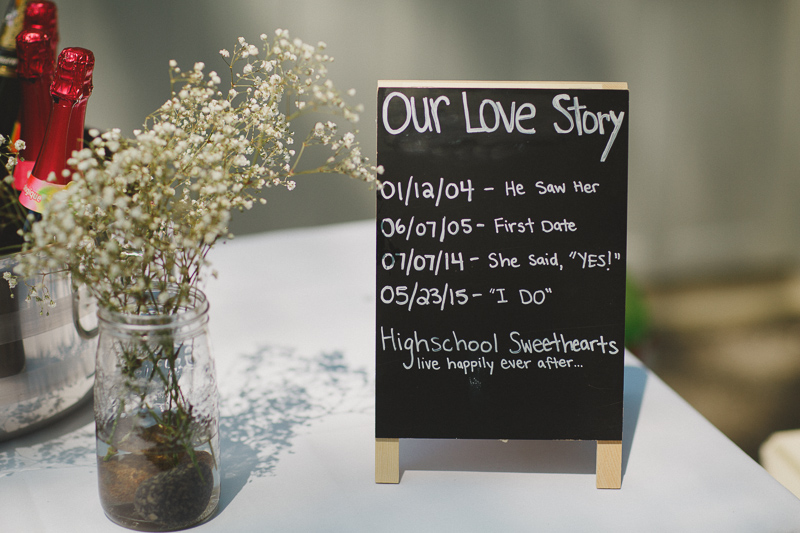 Our Love Story
01/12/04 - He Saw Her
06/07/05 - First Date
07/07/14 - She Said, "YES!"
05/23/15 - "I DO"
Highschool Sweethearts
live happily ever after...